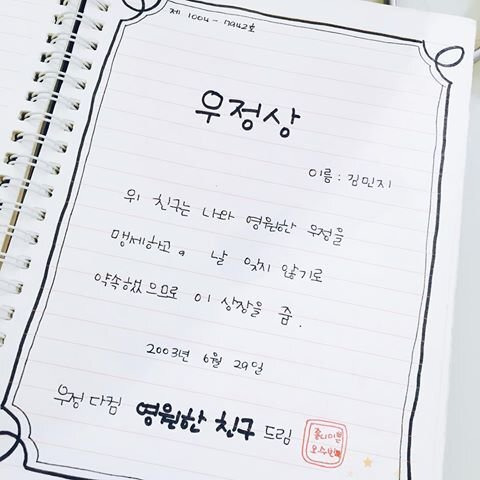 제 1004 - 7942호
우정상
이름 : 김민지
위 친구는 나와 영원한 우정을
맹세하고, 날 잊지 않기로
약속했으므로 이 상장을 줌.
2003년 6월 29일
우정 다컴 영원한 친구 드림